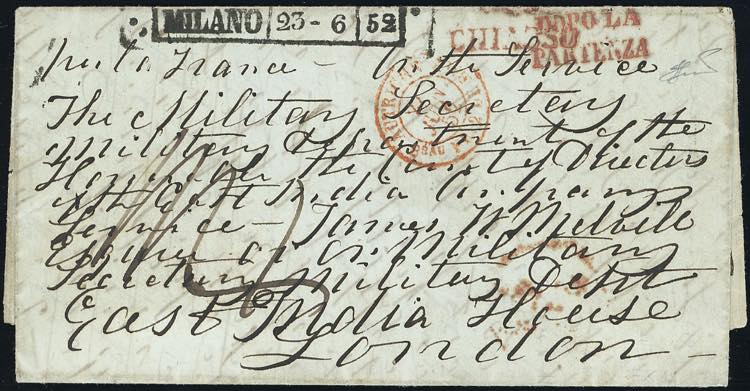 MILANO 23 - 6 52
DOPO LA
PARTENZA
CHIASSO
France — On the Service
The Military Secretary
Military Department of the
Honorable the Court of Directors
of the East India Company
Service — James W Melvill
Esquire or Military
Secretary Military Dept
East India House
London —